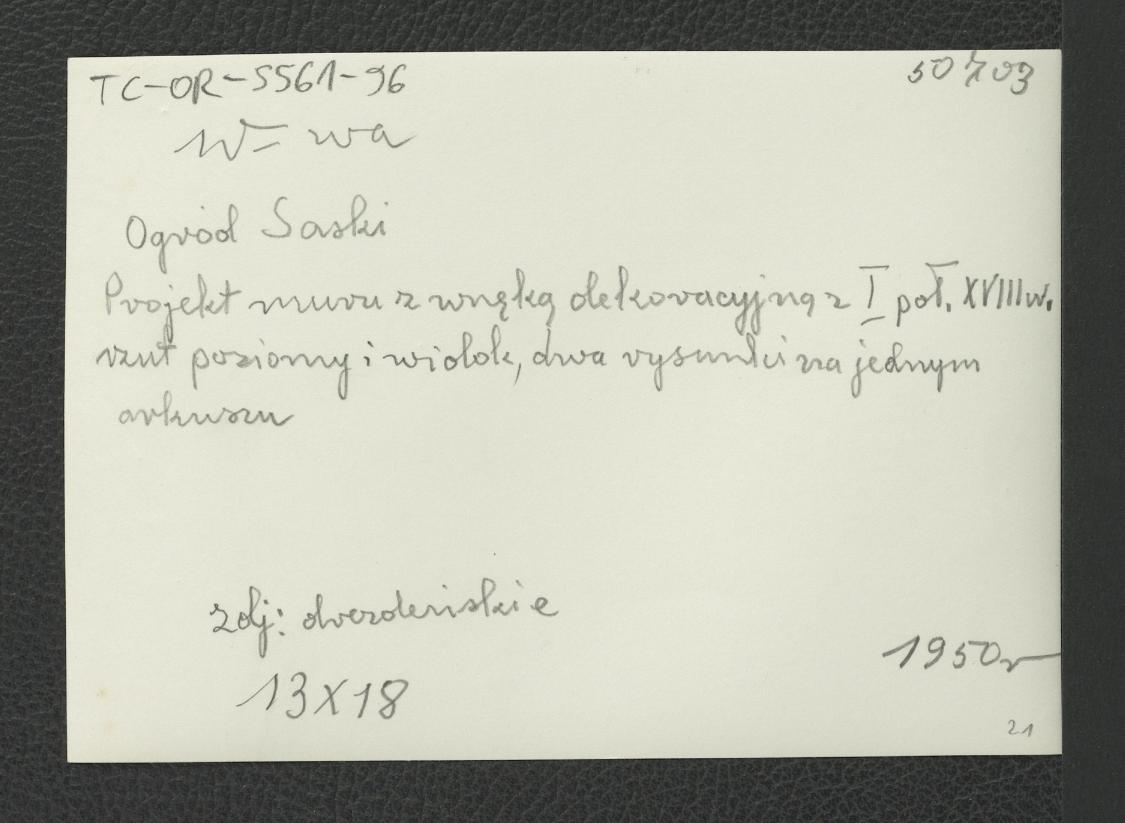 TC-OR-5561-96
50703
W-wa
Ogród Saski
Projekt muru z wnęką dekoracyjną z I poł. XVIII w.
rzut poziomy i widok, dwa rysunki na jednym
arkuszu
zdj: drezdeńskie
1950r
13X18
21